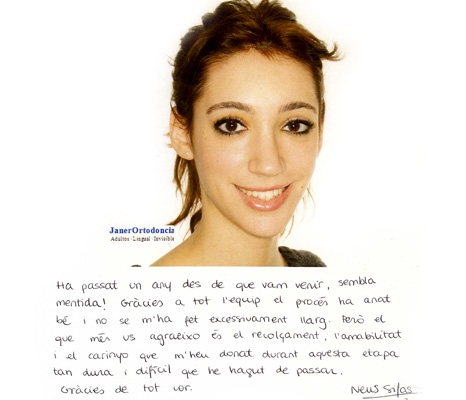 JanerOrtodoncia
Adultos - Lingual - Invisible
Ha passat un any des de que vam venir, sembla
mentida! Gràcies a tot l'equip el procés ha anat
bé i no se m'ha fet excessivament llarg. Però el
que més us agraeixo és el recolçament, l'amabilitat
i el carinyo que m'heu donat durant aquesta etapa
tan dura i difícil que he hagut de passar.
Gràcies de tot cor.
Neus Sifas